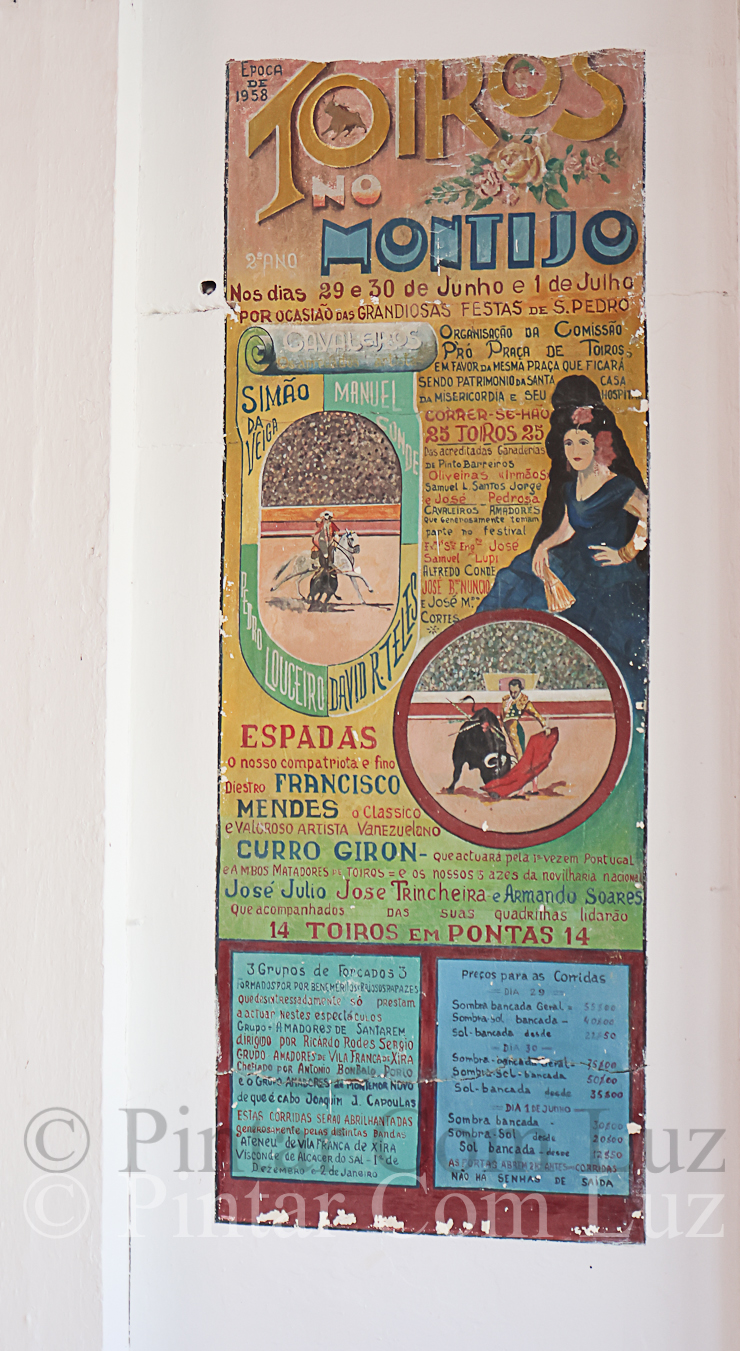 EPOCA
DE
1958
TOIROS
NO
MONTIJO
2º ANO
Nos dias 29 e 30 de Junho e 1 de Julho
POR OCASIÃO DAS GRANDIOSAS FESTAS DE S. PEDRO
CAVALEIROS
SIMÃO
DA
VEIGA
MANUEL
CONDE
PEDRO
LOUCEIRO
DAVID R. TELES
ORGANISAÇÃO DA COMISSÃO
PRÓ PRAÇA DE TOIROS,
EM FAVOR DA MESMA PRAÇA QUE FICARÁ
SENDO PATRIMONIO DA SANTA CASA
DA MISERICORDIA E SEU HOSPIT
CORRER-SE-HÃO
25 TOIROS 25
Das acreditadas Ganaderas
DE Pinto Barreiros
Oliveiras (Irmãos)
Samuel L. Santos Jorge
e José Pedrosa
CAVALEIROS AMADORES
que generosamente tomam
parte no festival
Engº José
Samuel Lupi
ALFREDO CONDE
JOSÉ B. NUNCIO
e José Mª
CORTES
ESPADAS
O nosso compatriota e fino
Diestro FRANCISCO
MENDES o Classico
e VALOROSO ARTISTA Vanezuelano
CURRO GIRON - que actuará pela 1ª vez em Portugal
e AMBOS MATADORES DE TOIROS = e OS nossos 3 azes da novilharia nacional
José Julio Jose Trincheira e Armando Soares
Que acompanhados DAS SUAS quadrinhas lidarão
14 TOIROS EM PONTAS 14
3 Grupos de Forcados 3
FORMADOS POR POR BENEMÉRITOS RAPAZES
que só prestam
a actuar nestes espectáculos
GRUPO AMADORES DE SANTAREM
dirigido por Ricardo Rodes Sergio
GRUPO AMADORES DE VILA FRANCA DE XIRA
Chefiado por Antonio
e o Grupo AMADORES DE MONTEMOR NOVO
de que é cabo Joaquim J. CAPOULAS
ESTAS CORRIDAS SERÃO ABRILHANTADAS
generosamente pelas distintas bandas
Ateneu de Vila Franca de Xira
Visconde de Alcacer do Sal - 1º de
Dezembro e 2 de Janeiro
Preços para as Corridas
= DIA 29 =
Sombra bancada Geral =
Sombra-sol bancada - 40$00
Sol-bancada desde
- DIA 30 -
Sombra-bancada Geral-
Sombra-Sol-bancada 50$00
Sol-bancada desde 35$00
DIA 1 DE JUNHO
Sombra bancada - 30$00
Sombra-Sol desde 20$00
Sol bancada - desde 12$50
AS PORTAS ABREM ANTES CORRIDAS
NÃO HA SENHAS DE SAÍDA
© Pintar Com Luz
© Pintar Com Luz